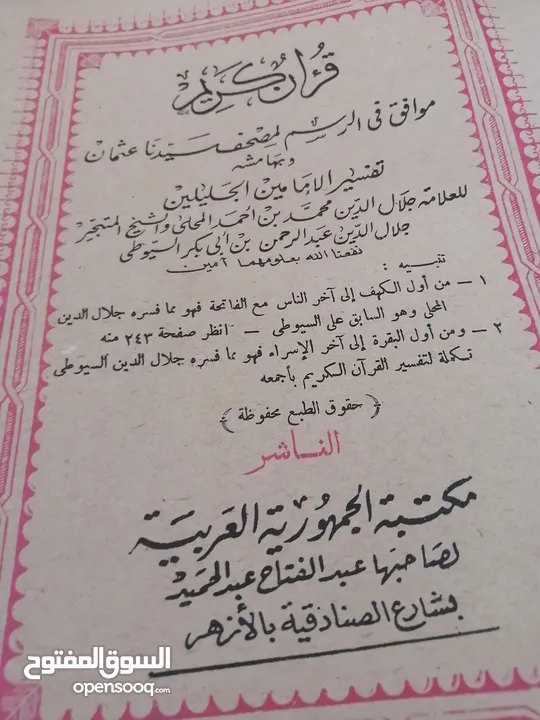 قرآن كريم
موافق فى الرسم لمصحف سيدنا عثمان
وبهامشه
تفسير الإمامين الجليلين
للعلامة جلال الدين محمد بن أحمد المحلى والشيخ المتبحر
جلال الدين عبد الرحمن بن أبى بكر السيوطى
نفعنا الله بعلومهما آمين
تنبيه :
١ — من أول الكهف إلى آخر الناس مع الفاتحة فهو مما فسره جلال الدين
المحلى وهو السابق على السيوطى — انظر صفحة ٢٤٣ منه
٢ — ومن أول البقرة إلى آخر الإسراء فهو مما فسره جلال الدين السيوطى
تكملة لتفسير القرآن الكريم بأجمعه
﴿ حقوق الطبع محفوظة ﴾
الناشر
مكتبة الجمهورية العربية
لصاحبها عبد الفتاح عبد الحميد
بشارع الصنادقية بالأزهر
السوق المفتوح
opensooq.com